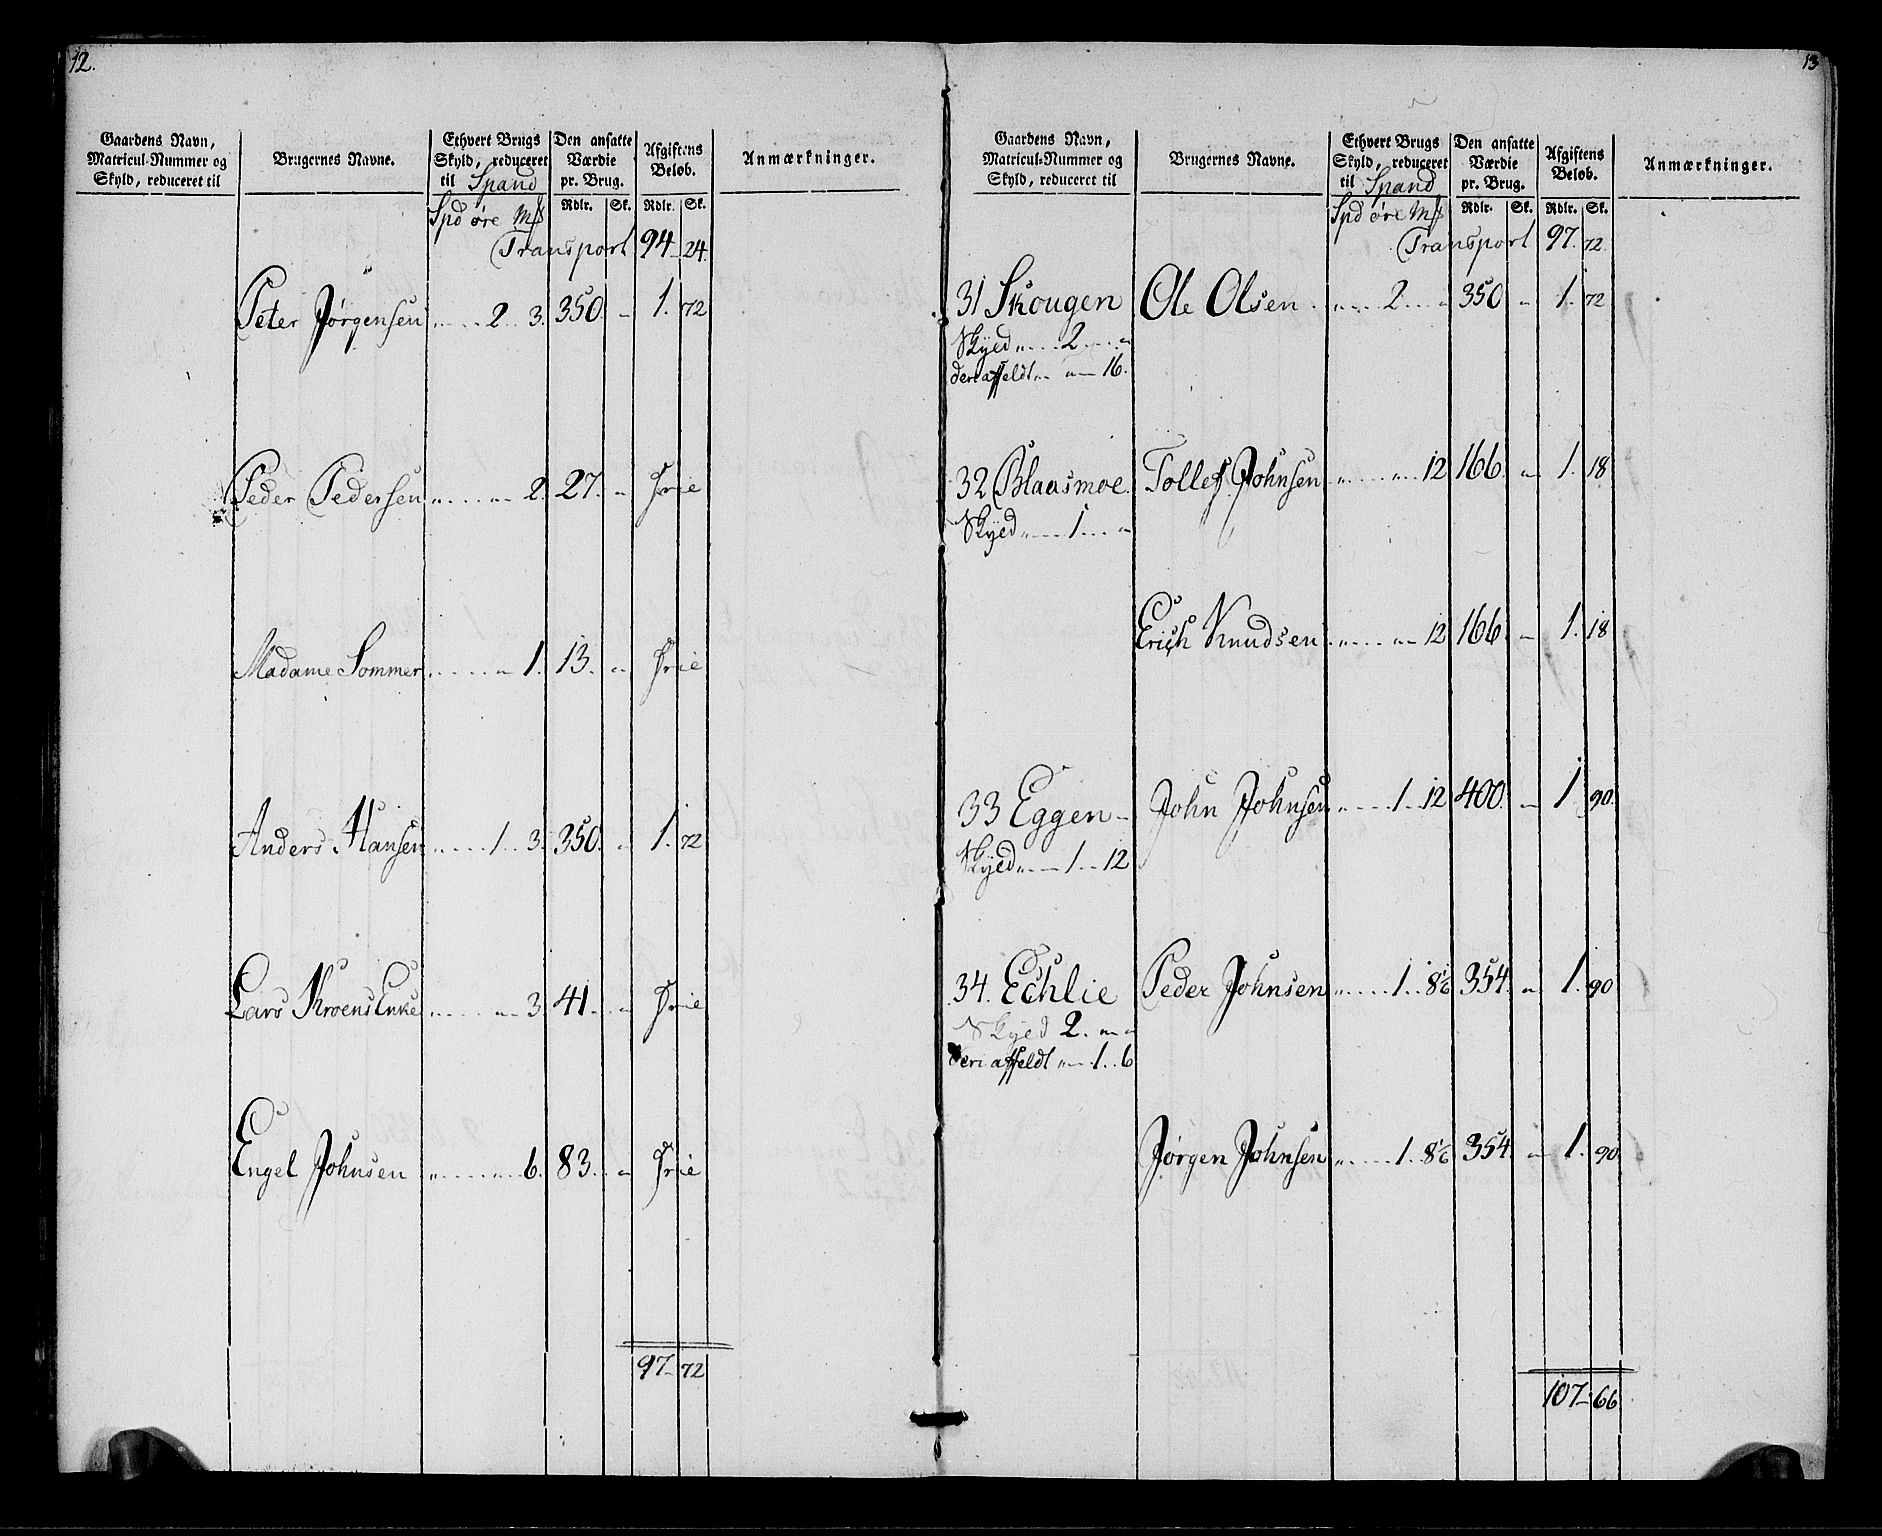 12.
Gaardens Navn, Matricul-Nummer og Skyld, reduceret til
Brugernes Navne.
Ethvert Brugs Skyld, reduceret til Spand
Den ansatte Værdie pr. Brug.
Afgiftens Beløb.
Anmærkninger.
Spd øre Mk Rdlr. Sk. Rdlr. Sk.
Transport 94 24.
Peter Jørgensen „ 2 3. 350. „ 1. 72
Peder Pedersen „ „ 2. 27. „ Frie
Madame Sommer „ „ 1. 13. „ Frie
Anders Hansen „ 1 3. 350. „ 1. 72
Lars Kroens Enke „ „ 3. 41 „ Frie
Engel Johnsen „ „ 6. 83 „ Frie
97 72
13
Gaardens Navn, Matricul-Nummer og Skyld, reduceret til
Brugernes Navne.
Ethvert Brugs Skyld, reduceret til Spand
Den ansatte Værdie pr. Brug.
Afgiftens Beløb.
Anmærkninger.
Spd øre Mk Rdlr. Sk. Rdlr. Sk.
Transport 97. 72.
31 Skougen Ole Olsen „ 2 „ 350 „ 1. 72
Skyld „ 2 „
deri affeldt „ „ 16.
32 Blaasmoe. Tollef Johnsen „ „ 12 166. „ 1. 18
Skyld „ 1 „
Erich Knudsen „ „ 12 166. „ 1. 18
33 Eggen John Johnsen „ 1 12 400. „ 1 90.
Skyld „ 1 12
34. Echlie Peder Johnsen „ 1. 8⅙ 354. „ 1. 90
Skyld 2. „ „
deri affeldt „ 1. 6
Jørgen Johnsen „ 1. 8⅙ 354. „ 1. 90
107 66